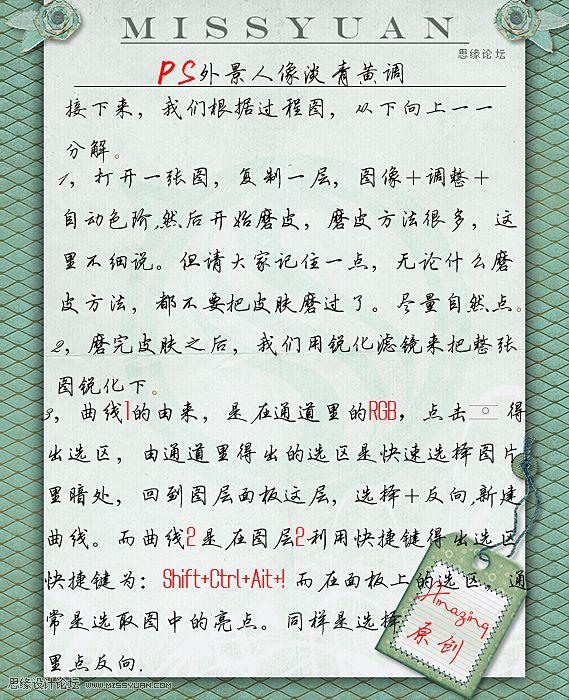 MISSYUAN
思缘论坛
PS外景人像淡青黄调
接下来，我们根据过程图，从下向上一一
分解。
1，打开一张图，复制一层，图像+调整+
自动色阶,然后开始磨皮，磨皮方法很多，这
里不细说。但请大家记住一点，无论什么磨
皮方法，都不要把皮肤磨过了。尽量自然点。
2，磨完皮肤之后，我们用锐化滤镜来把整张
图锐化下。
3，曲线1的由来，是在通道里的RGB，点击 得
出选区，由通道里得出的选区是快速选择图片
里暗处，回到图层面板这层，选择+反向,新建
曲线。而曲线2是在图层2利用快捷键得出选区
快捷键为：Shift+Ctrl+Ait+! 而在面板上的选区，通
常是选取图中的亮点。同样是选择
里点反向.
Amazing
原创
思缘设计论坛 WWW.MISSYUAN.COM